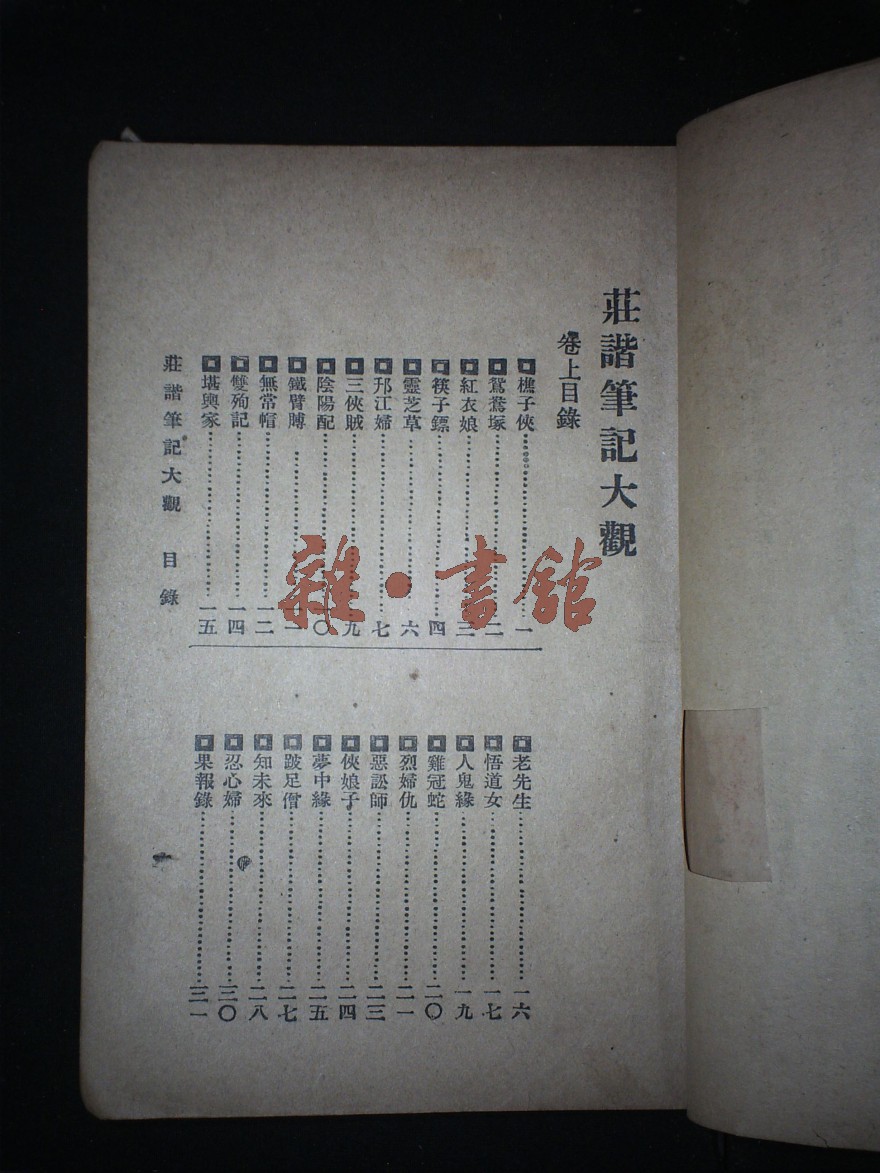 莊諧筆記大觀
卷上目錄
樵子俠……一
鴛鴦塚……二
紅衣娘……三
筷子鏢……四
靈芝草……六
邗江婦……七
三俠賊……九
陰陽配……一〇
鐵臂膊……一一
無常帽……一二
雙殉記……一四
堪輿家……一五
老先生……一六
悟道女……一七
人鬼緣……一九
雞冠蛇……二〇
烈婦仇……二一
惡訟師……二三
俠娘子……二四
夢中緣……二五
跛足僧……二七
知未來……二八
忍心婦……三〇
果報錄……三一
莊諧筆記大觀 目錄
雜·書館